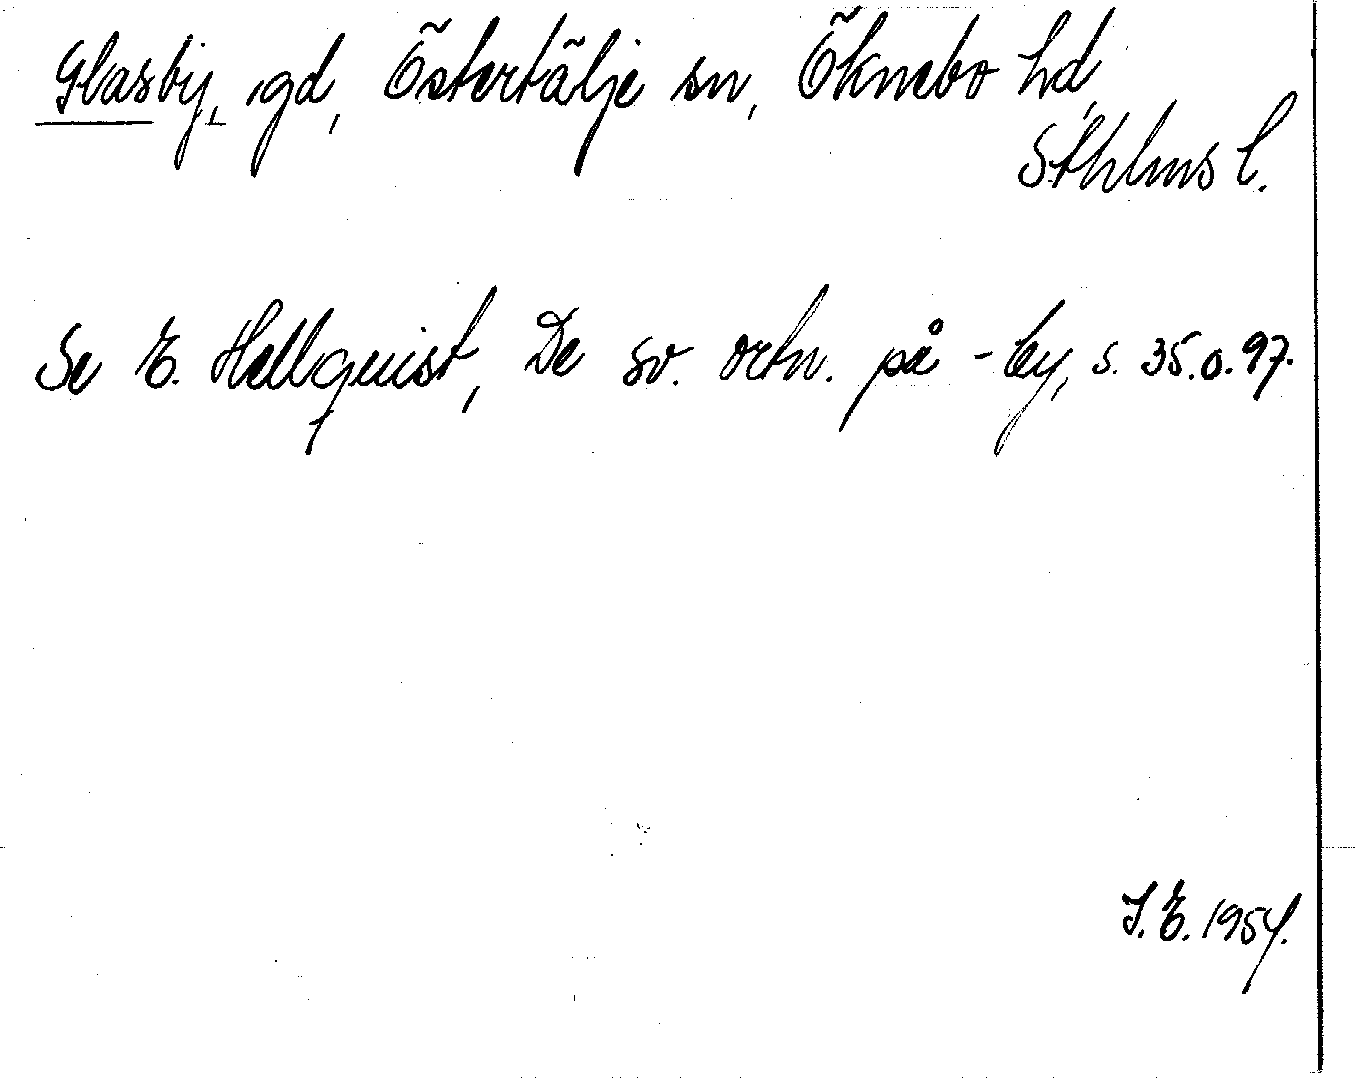 Glasby, gd, Östertälje sn, Öknebo hd,
Sthlms l.
Se E. Hellquist, De sv. ortn. på -by, s. 35.o.97.
I. E. 1954.